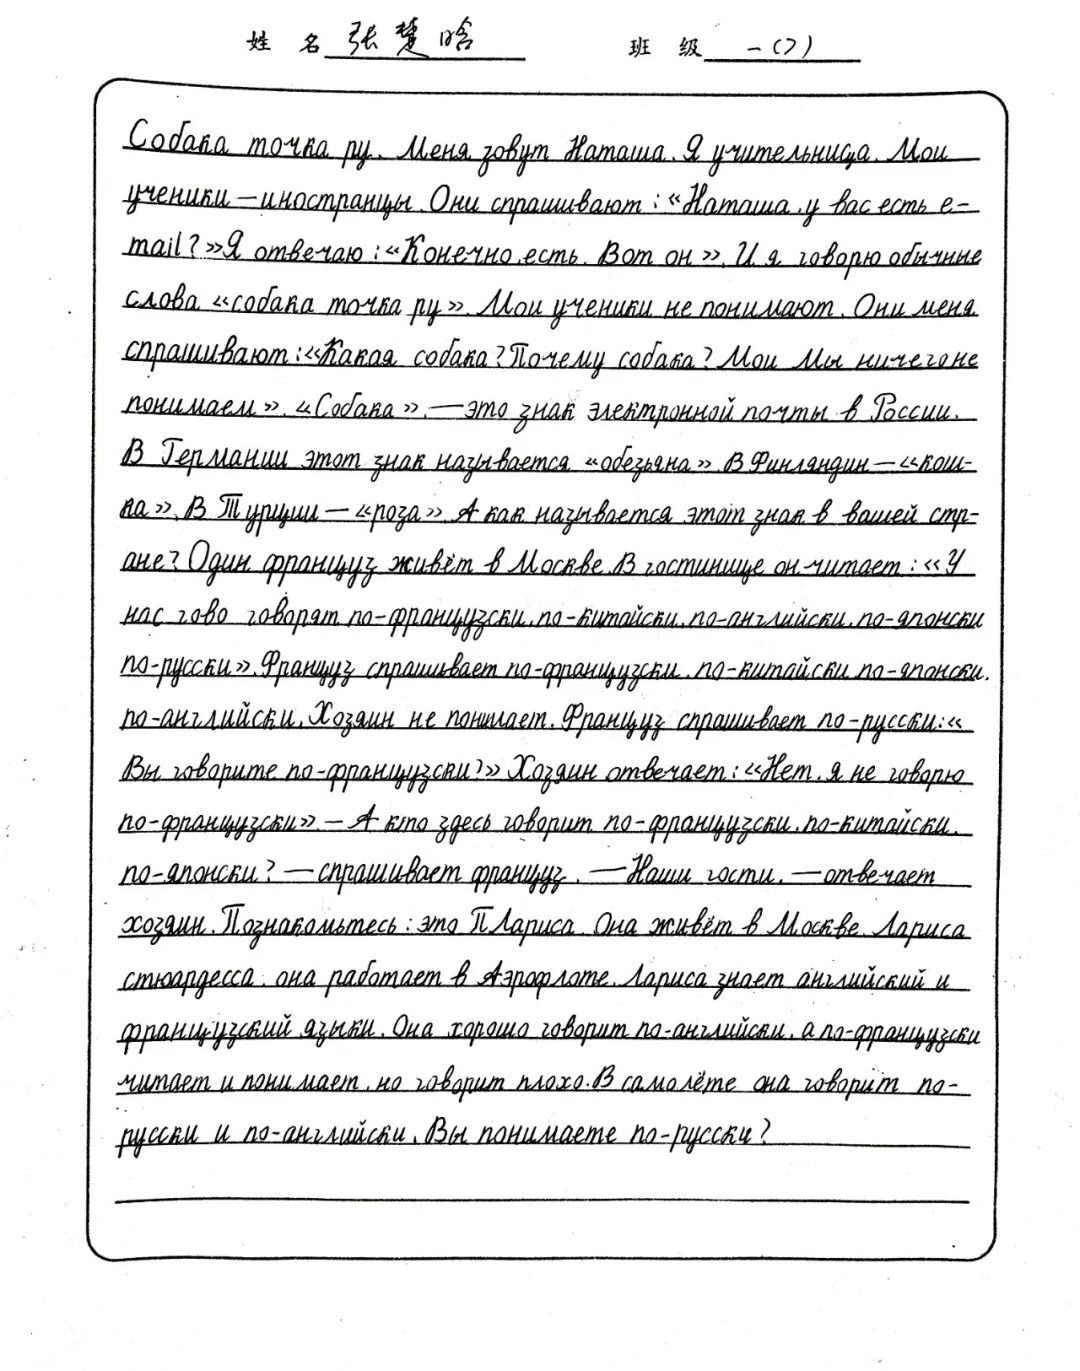 姓 名 张楚晗 班 级 一(7)
Собака точка ру. Меня зовут Наташа. Я учительница. Мои
ученики — иностранцы. Они спрашивают: «Наташа, у вас есть e-
mail?» Я отвечаю: «Конечно, есть. Вот он». И я говорю обычные
слова «собака точка ру». Мои ученики не понимают. Они меня
спрашивают: «Какая собака? Почему собака? Мои Мы ничего не
понимаем». «Собака». — это знак электронной почты в России.
В Германии этот знак называется «обезьяна». В Финляндин — «кош-
ка». В Турции — «роза». А как называется этот знак в вашей стр-
ане? Один француз живёт в Москве. В гостинице он читает: «У
нас гово говорят по-французски, по-китайски, по-английски, по-японски
по-русски». Француз спрашивает по-французски, по-китайски по-японски,
по-английски. Хозяин не понимает. Француз спрашивает по-русски: «
Вы говорите по-французски?» Хозяин отвечает: «Нет, я не говорю
по-французски». — А кто здесь говорит по-французски, по-китайски,
по-японски? — спрашивает француз. — Наши гости, — отвечает
хозяин. Познакомьтесь: это П Лариса. Она живёт в Москве. Лариса
стюардесса, она работает в Аэрофлоте. Лариса знает английский и
французский языки. Она хорошо говорит по-английски, а по-французски
читает и понимает, но говорит плохо. В самолёте она говорит по-
русски и по-английски. Вы понимаете по-русски?